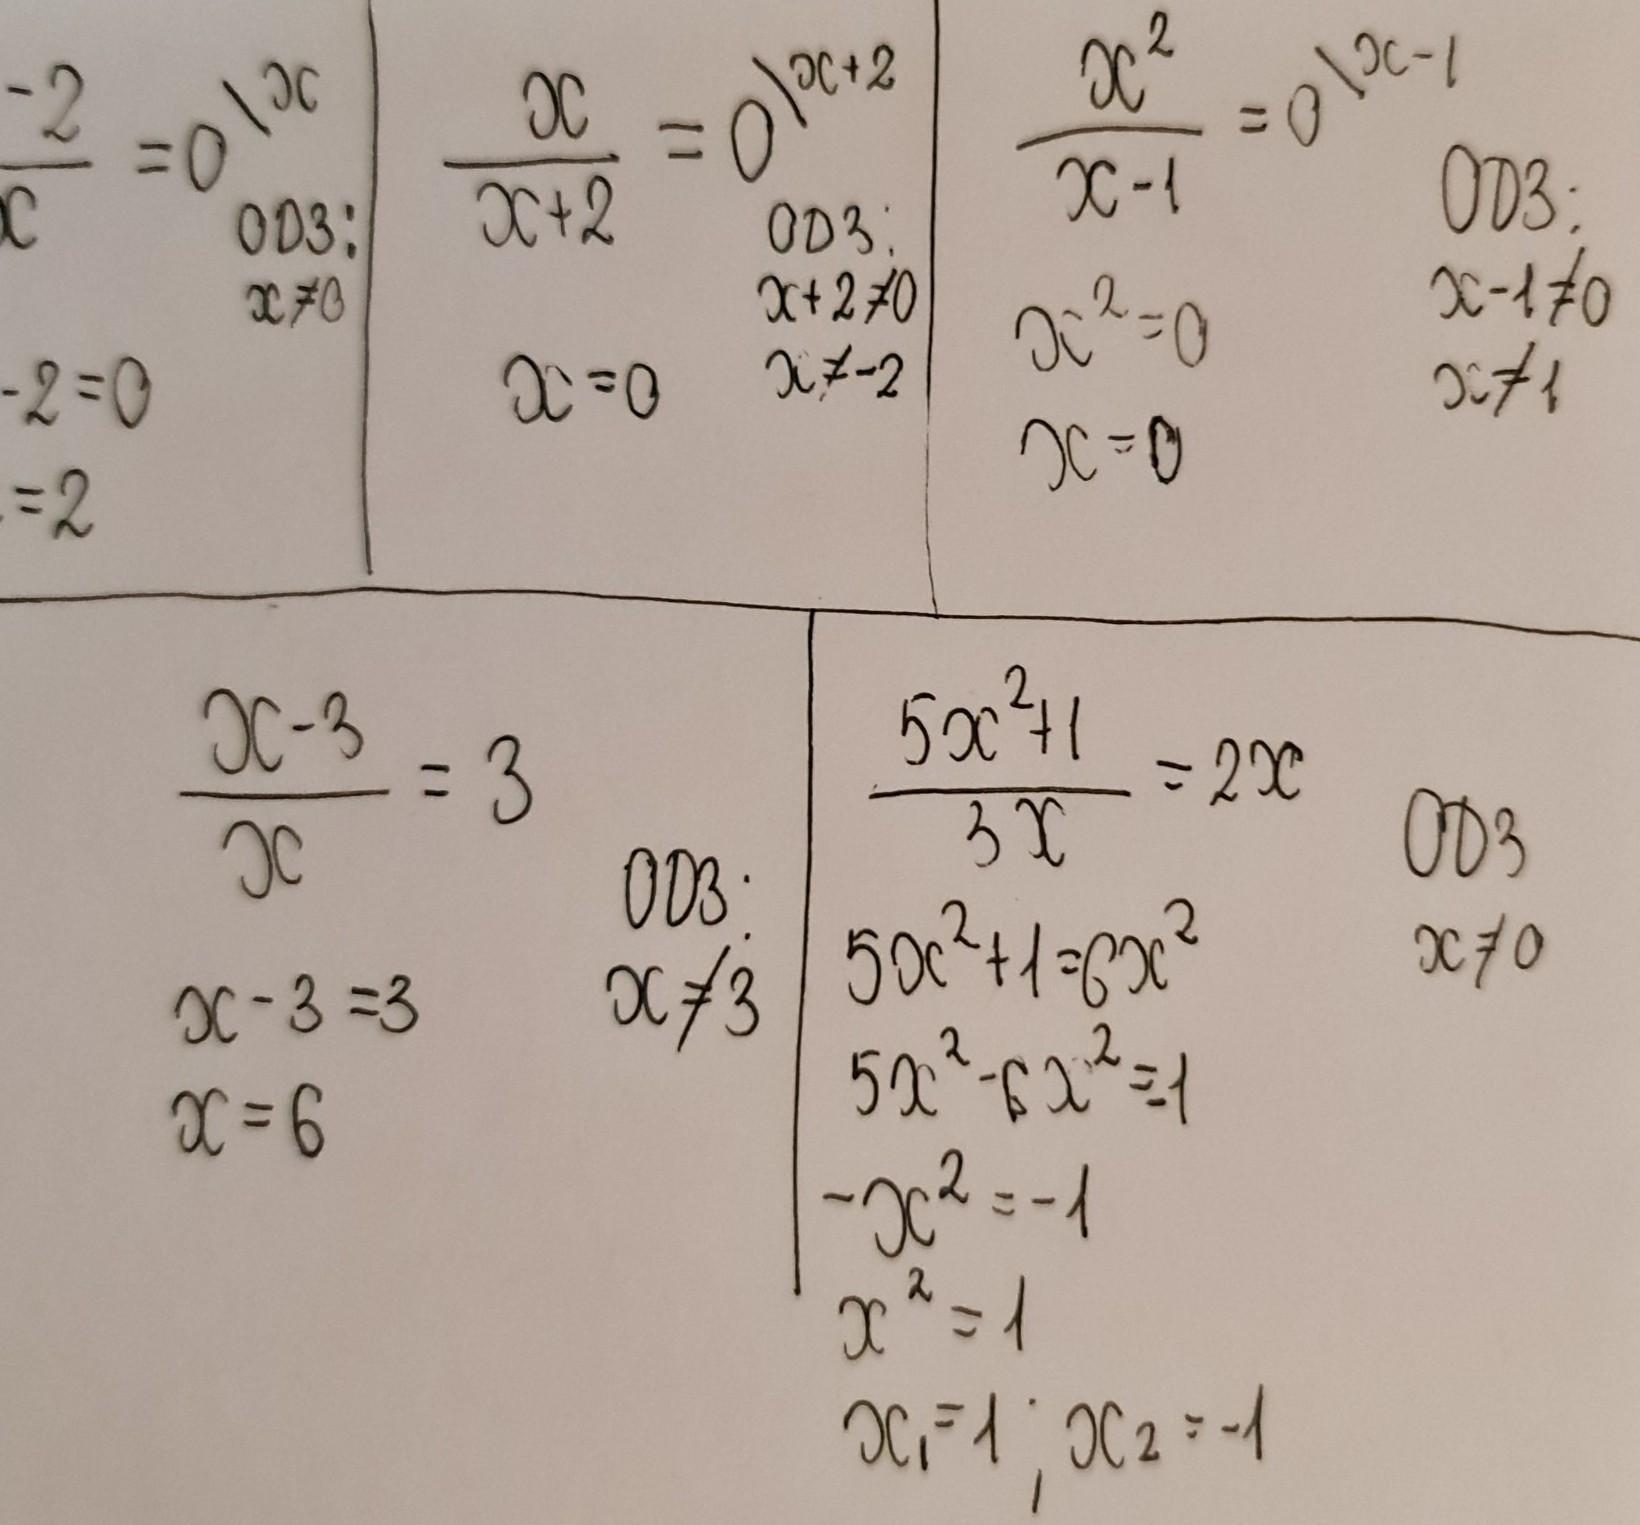 -2/x = 0 \x
ОДЗ:
x≠0
-2=0
=2
x/(x+2) = 0 \x+2
ОДЗ:
x+2≠0
x≠-2
x=0
x²/(x-1) = 0 \x-1
ОДЗ:
x-1≠0
x≠1
x²=0
x=0
(x-3)/x = 3
ОДЗ:
x≠3
x-3=3
x=6
(5x²+1)/3x = 2x
ОДЗ
x≠0
5x²+1=6x²
5x²-6x²=-1
-x²=-1
x²=1
x₁=1; x₂=-1